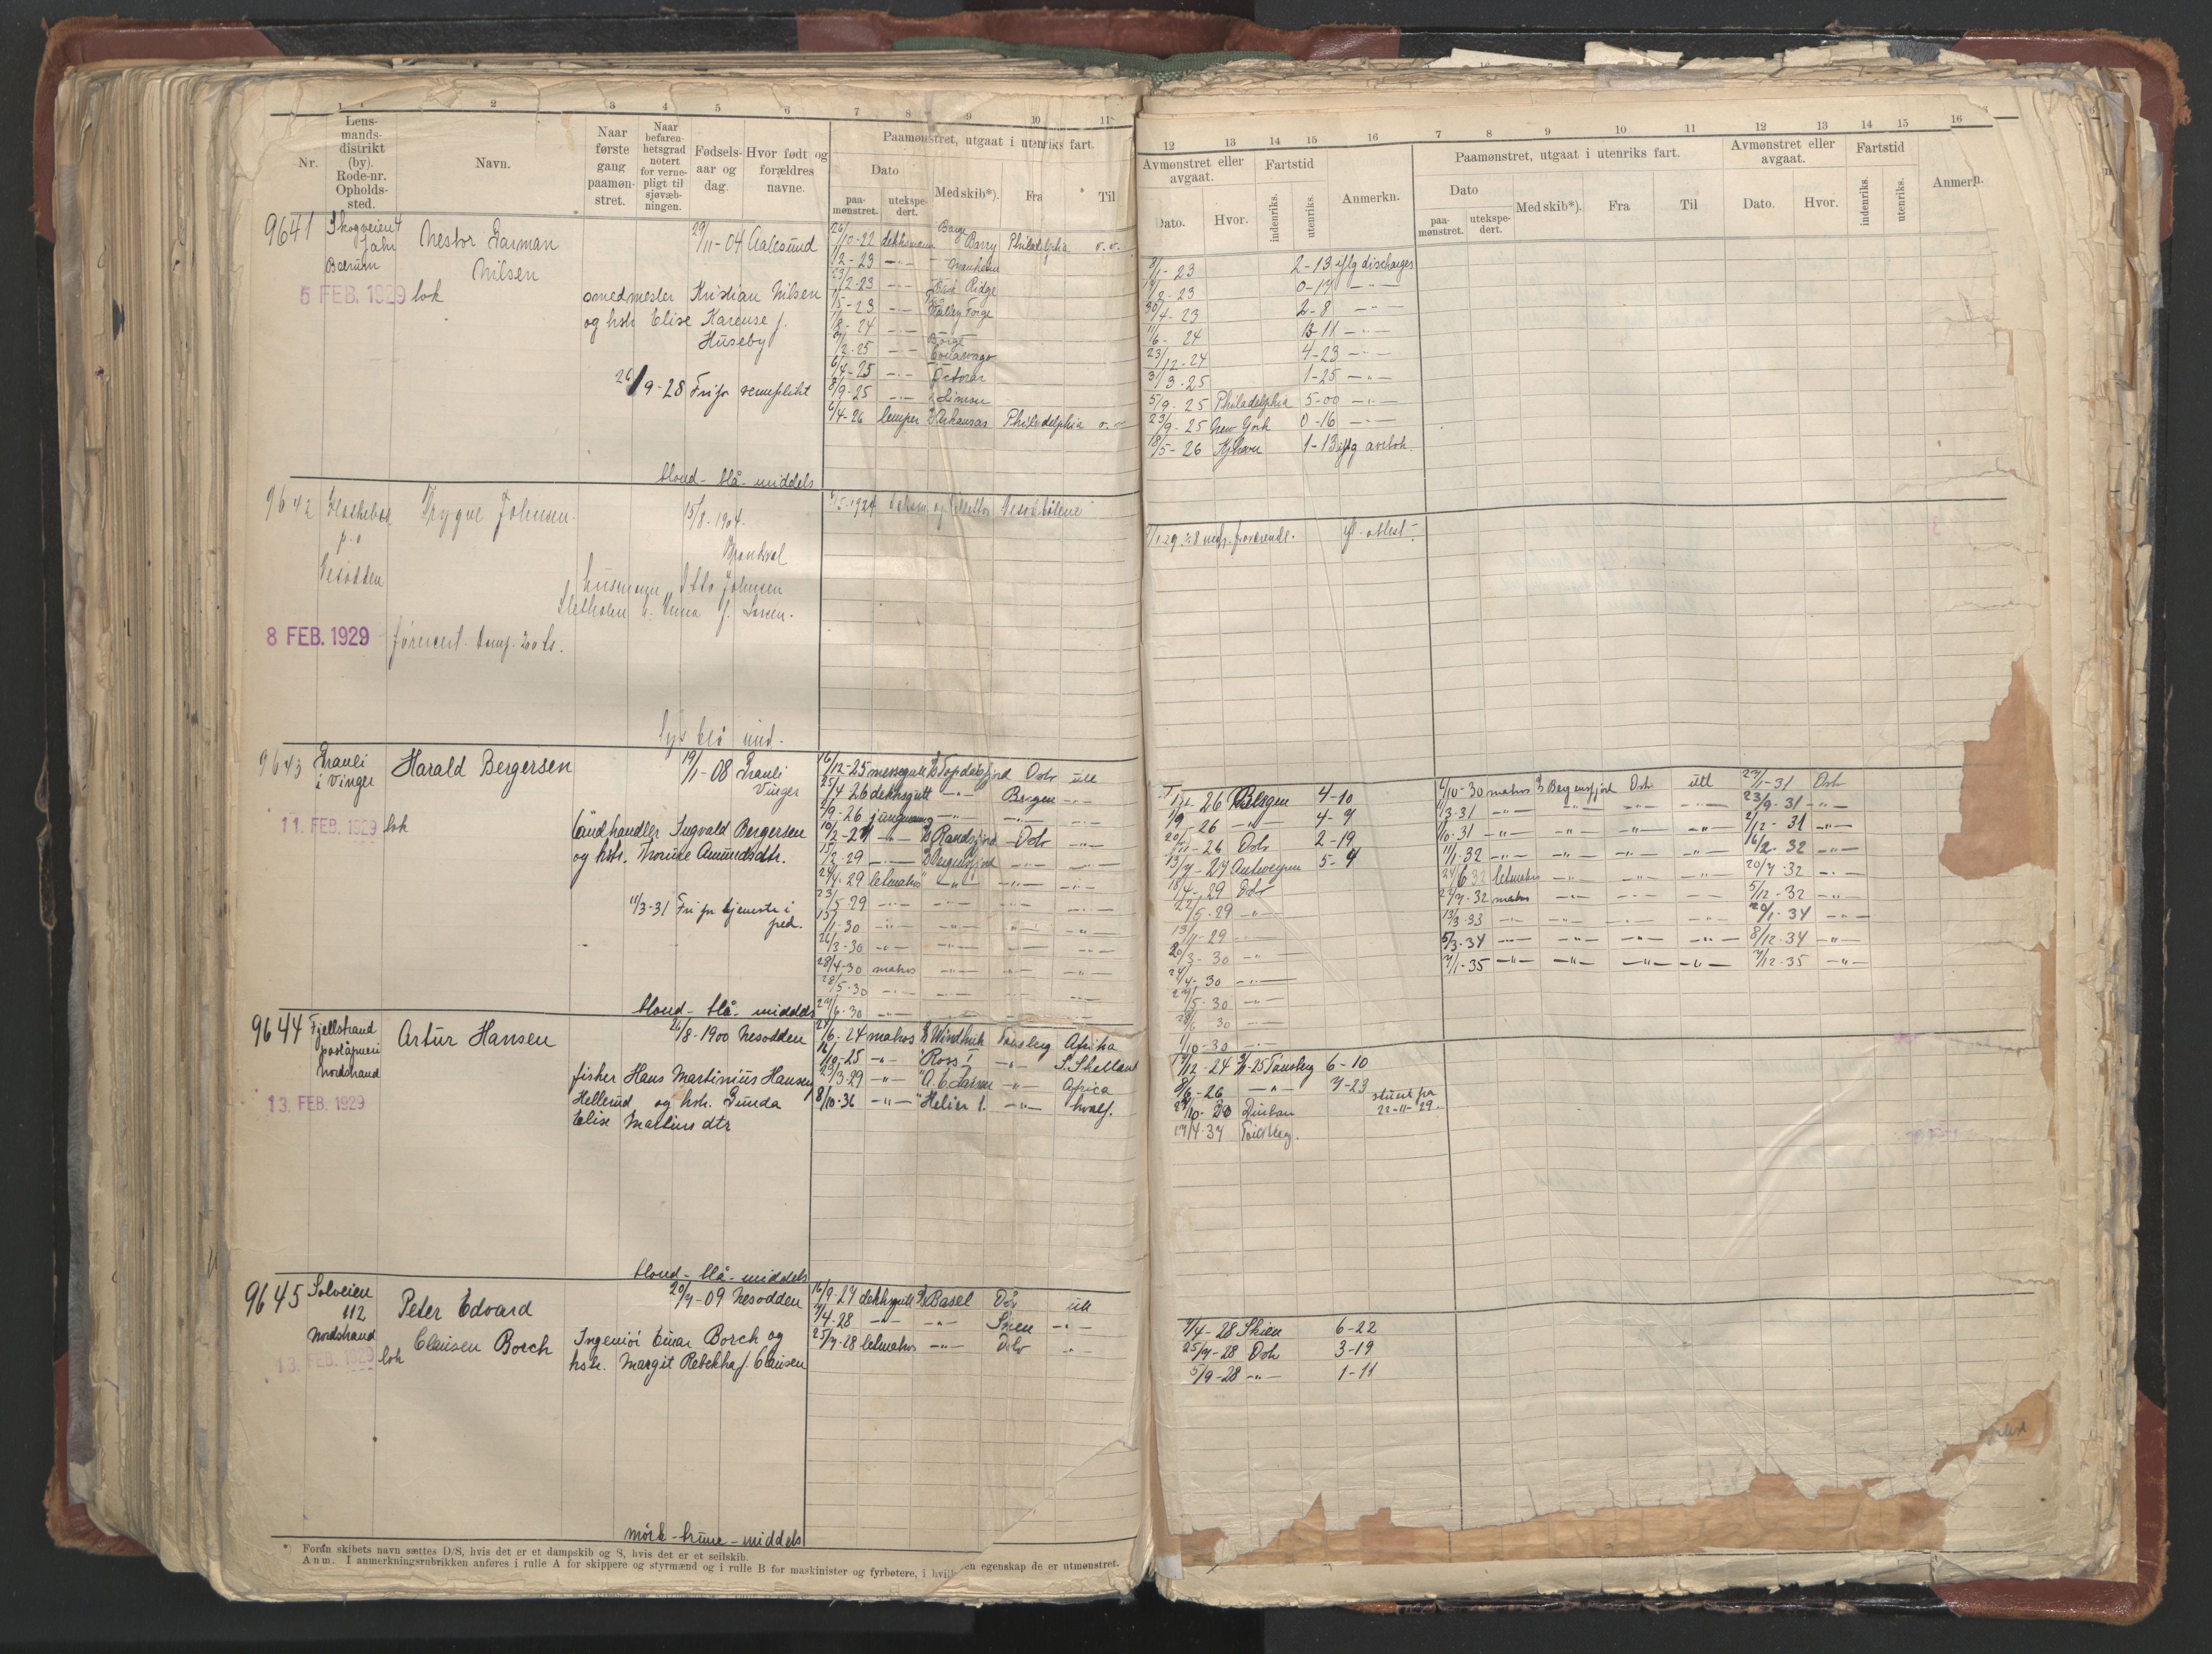 1 2 3 4 5 6 7 8 9 10 11
Nr.
Lens-
mands-
distrikt
(by).
Rode-nr.
Opholds-
sted.
Navn.
Naar
første
gang
paamøn-
stret.
Naar
befaren-
hetsgrad
notert
for verne-
pligt til
sjøvæb-
ningen.
Fødsels-
aar og
dag.
Hvor født og
forældres
navne.
Paamønstret, utgaat i utenriks fart.
Dato
paa-
mønstret.
utekspe-
dert.
Med skib*).
Fra
Til
12 13 14 15 16 7 8 9 10 11 12 13 14 15 16
Avmønstret eller
avgaat.
Dato.
Hvor.
Fartstid
indenriks.
utenriks.
Anmerkn.
Paamønstret, utgaat i utenriks fart.
Dato
paa-
mønstret.
utekspe-
dert.
Med skib*).
Fra
Til
Avmønstret eller
avgaat.
Dato.
Hvor.
Fartstid
indenriks.
utenriks.
Anmerkn.
9641
Bærum
5 FEB. 1929
lok
Nestor
Nilsen
29/11-04 Aalesund
smedmester Kristian Nilsen
og hstr Elise Karense f.
Huseby
26/9-28 Fri for verneplikt
blond - blå - middels
26/10-22 dekksmann Barge Barry Philadelphia v.v.
1/2-23 -"- Manheim
23/2-23 -"- Ridge
1/5-23 -"- Valley Forge
1/8-24 -"-
2/2-25 -"-
6/4-25 -"- Octorar
8/9-25 -"- Limon
6/4-26 lemper Arkansas Philadelphia v.v.
8/1-23 2-13 iflg discharges
12-23 0-19 -"-
30/4-23 2-8 -"-
11/6-24 -"-
23/12-24 4-23 -"-
31/3-25 1-25 -"-
5/9-25 Philadelphia 5-00 -"-
23/9-25 New York 0-16 -"-
18/5-26 Kjhavn 1-13 iflg
9642
p.o
Nesodden
8 FEB. 1929
Trygve Johnsen
15/8-1904.
Brandval
husmann Otto Johnsen
Sletholen f. Larsen.
lys blå mid.
9643
i Vinger
11. FEB. 1929
lok
Harald Bergersen
19/1-08
Vinger
Landhandler Ingvald Bergersen
og hstr. Amundsdtr.
11/3-31 Fri for tjeneste i
fred.
blond - blå - middels
16/12-25 messegutt Topdalsfjord Oslo utl
25/4-26 dekksgutt -"- Bergen -"-
2/9-26 jungmann -"- -"- -"-
10/2-27 -"- Randsfjord Oslo -"-
15/2-29 -"- Bergensfjord -"- -"-
24/4-29 letmatros -"- -"- -"-
23/5-29 -"- -"- -"- -"-
15/1-30 -"- -"- -"- -"-
26/3-30 -"- -"- -"- -"-
28/4-30 matros -"- -"- -"-
28/5-30 -"- -"- -"- -"-
27/6-30 -"- -"- -"- -"-
26 Bergen 4-10
1/9-26 -"- 4-9
20/11-26 Oslo 2-19
13/7-27 Antwerpen 5-4
18/4-29 Oslo
22/5-29 -"-
13/11-29 -"-
20/3-30 -"-
24/4-30 -"-
27/5-30 -"-
28/6 30 -"-
1/10-30 -"-
2/10-30 matros Bergensfjord Oslo utl 27/1-31 Oslo
11/3-31 -"- -"- -"- -"- 23/9-31 -"-
1/10-31 -"- -"- -"- -"- 2/12-31 -"-
11/1-32 -"- -"- -"- -"- 16/2-32 -"-
24/6 32 letmatros -"- -"- -"- 20/7-32 -"-
27/7-32 matros -"- -"- -"- 5/12-32 -"-
13/3-33 -"- -"- -"- -"- 20/1-34 -"-
5/3-34 -"- -"- -"- -"- 8/12-34 -"-
7/1-35 -"- -"- -"- -"- 7/12-35 -"-
9644
Fjellstrand
poståpneri
Nordstrand
13. FEB. 1929
Artur Hansen
26/8-1900 Nesodden
fisker Hans Martinius Hansen
Hellerud og hstr. Gunda
Elise Martinsdtr
blond - blå - middels
27/6-24 matros Windhuk Tønsberg Afrika
16/10-25 -"- "Ross" -"- S. Shetland
23/3-29 -"- "A. E. Larsen -"- Africa
8/10-36 -"- "Helier 1. -"- hvalf.
12-24 Tønsberg 6-10
8/6-26 -"- 7-23
Durban
22-11-29.
17/4-37 Tønsberg.
9645
Solveien
112
Nordstrand
13. FEB. 1929
lok
Peter Edvard
Clausen Borch
20/7-09 Nesodden
Ingeniør Einar Borch og
hstr. Margit Rebekka f. Clausen
mørk - brune - middels
16/9-27 dekksgutt Basel Oslo utl
7/4-28 -"- -"- Skien -"-
25/7-28 letmatros -"- Oslo -"-
7/4-28 Skien 6-22
25/7-28 Oslo 3-19
5/9-28 -"- 1-11
*) Foran skibets navn sættes D/S, hvis det er et dampskib og S, hvis det er et seilskib.
Anm. I anmerkningsrubrikken anføres i rulle A for skippere og styrmænd og i rulle B for maskinister og fyrbøtere, i hvil en egenskap de er utmønstret.